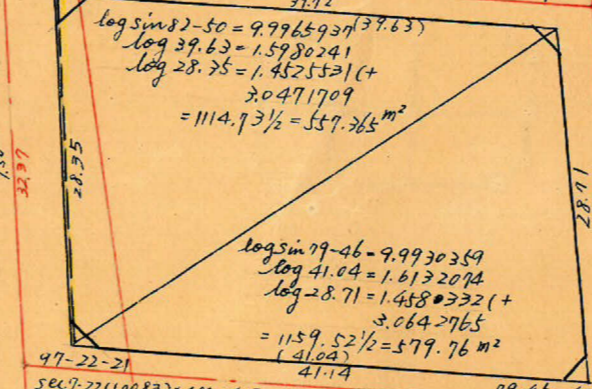 log sin 82-50 = 9.9965937 (39.63)
log 39.63 = 1.5980241
log 28.35 = 1.4525531 (+
3.0471709
= 1114.73 1/2 = 557.365 m²
28.35
32.37
28.71
log sin 79-46 = 9.9930359
log 41.04 = 1.6132074
log 28.71 = 1.4580332 (+
3.0642765
= 1159.52 1/2 = 579.76 m²
(41.04)
97-22-21
41.14